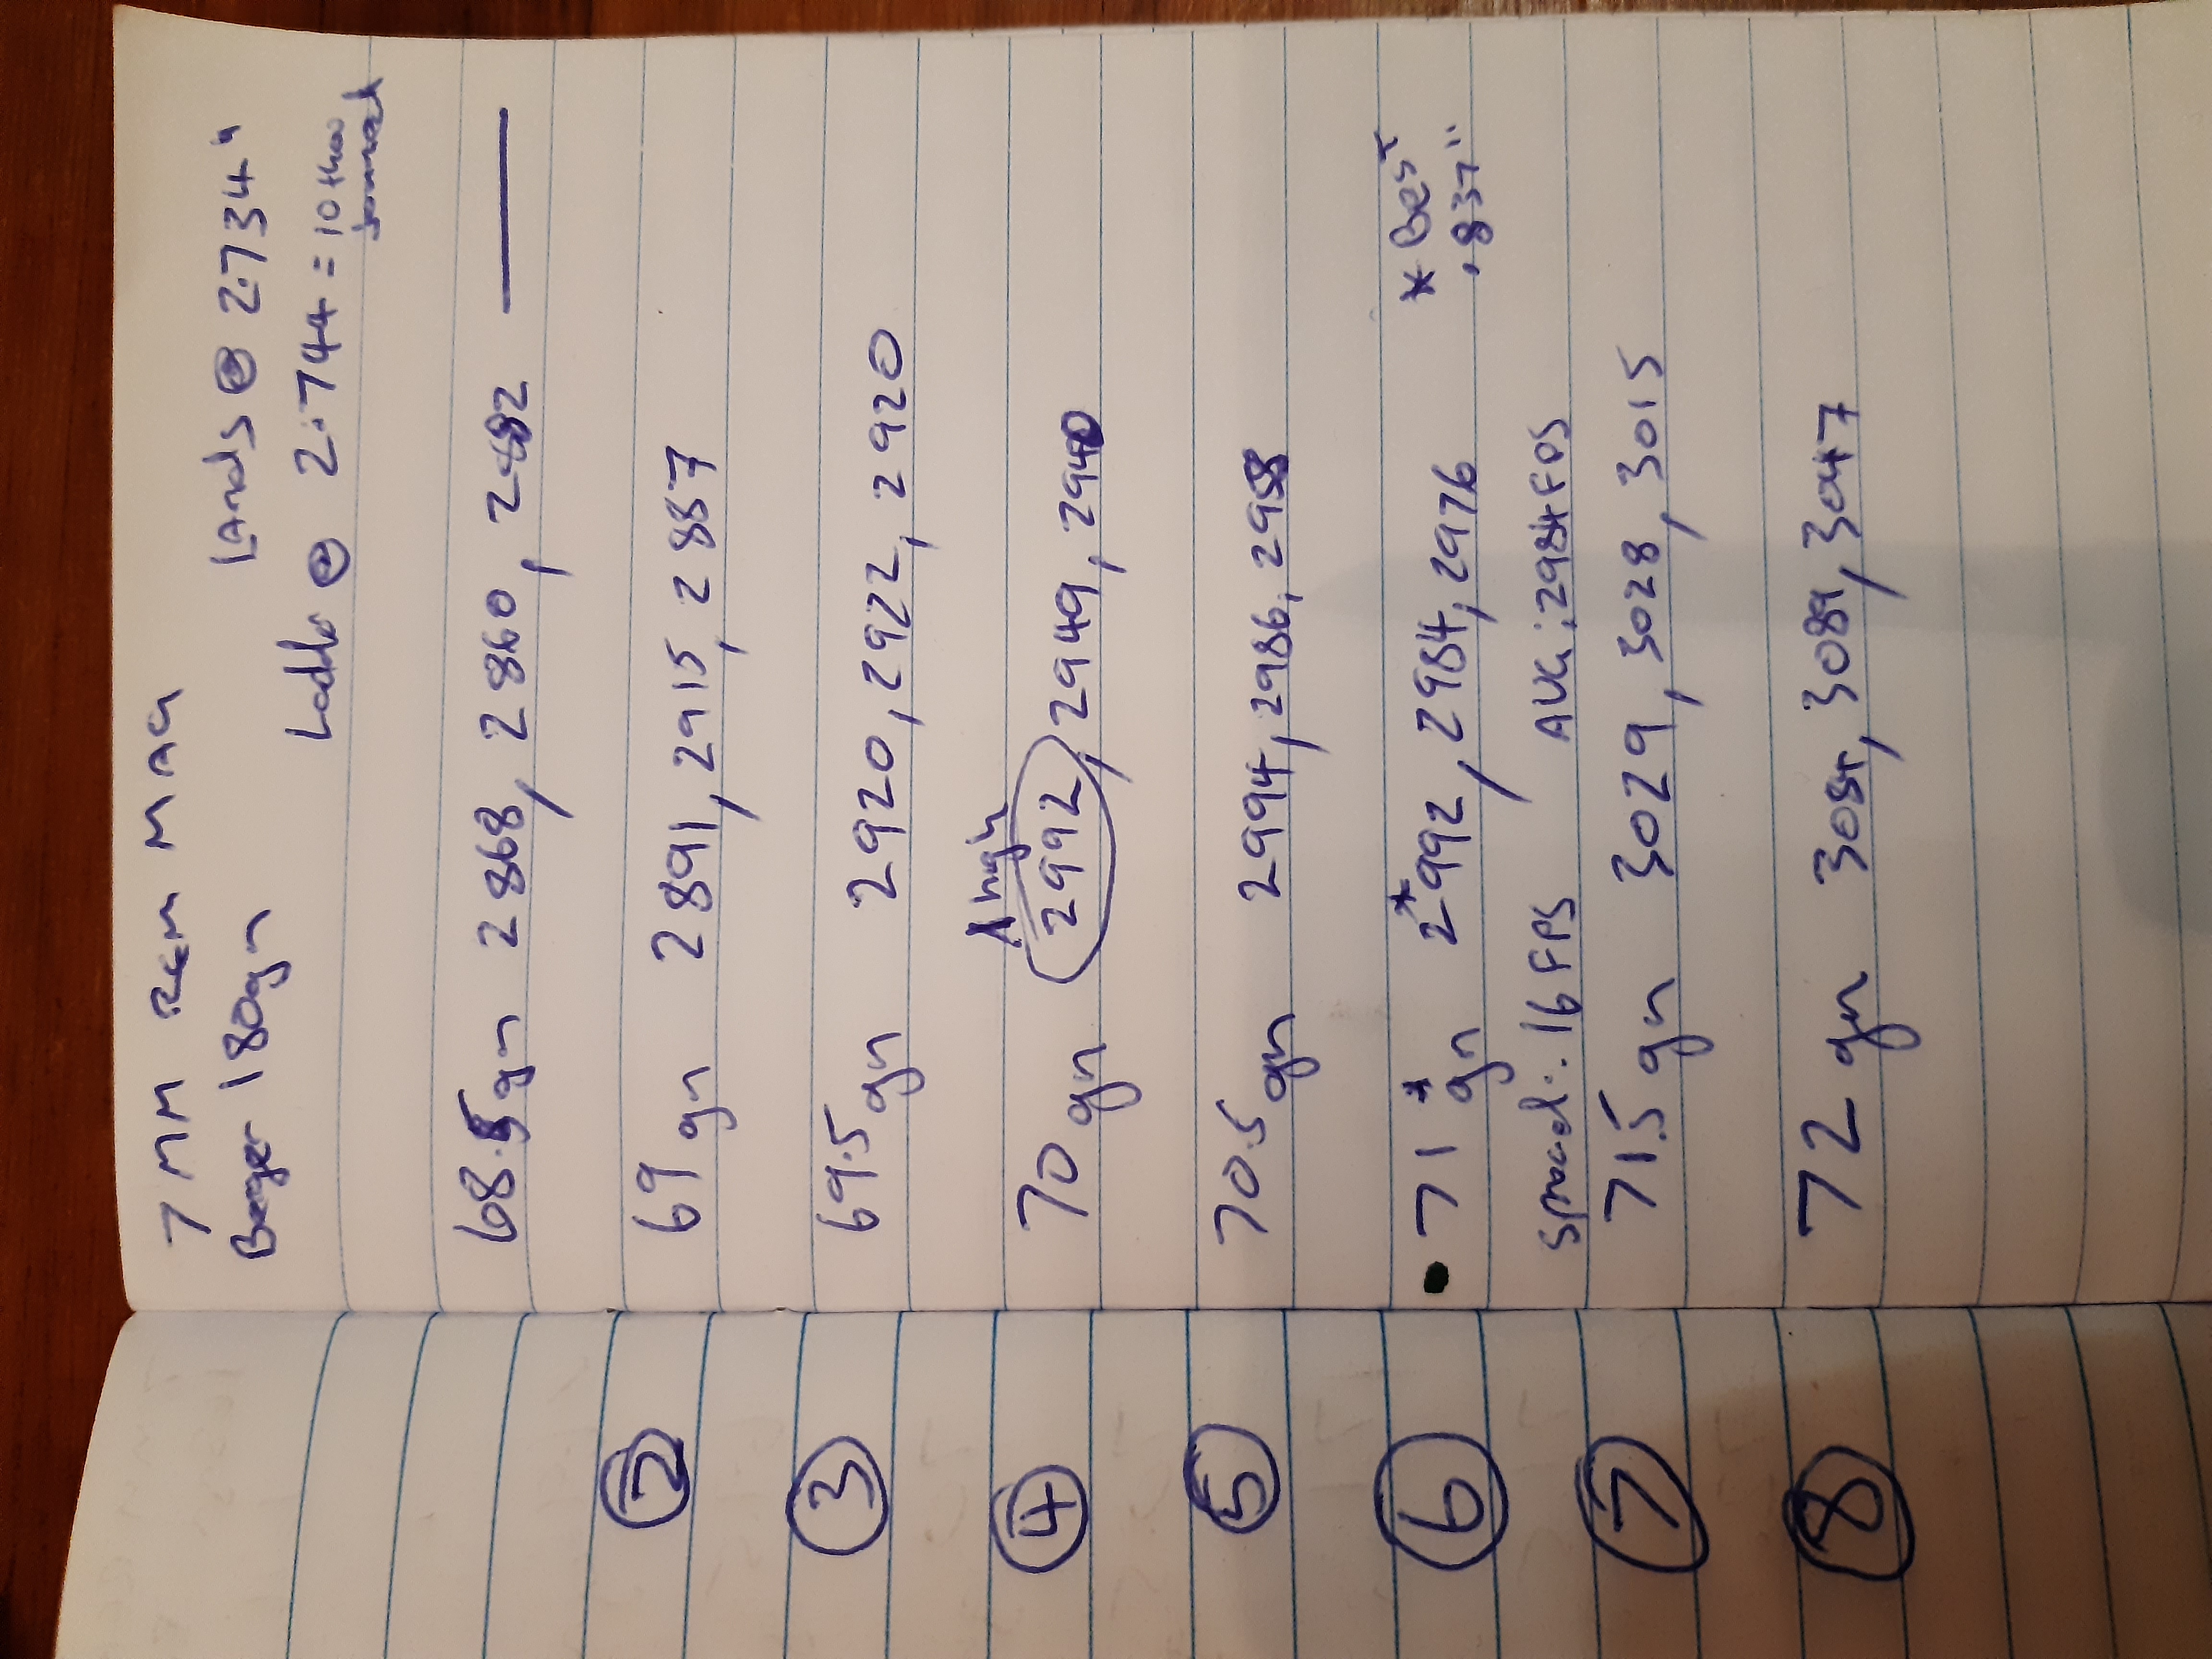 7 MM REM MAG
Berger 180gn Lands @ 2.734"
Ladder @ 2.744 = 10 thou
jammed
68.5gn 2868, 2860, 2882 —
② 69 gn 2891, 2915, 2887
③ 69.5 gn 2920, 2922, 2920
④ 70 gn 2992, 2949, 2940
⑤ 70.5 gn 2994, 2986, 2958
⑥ • 71* gn 2*992, 2984, 2976 * Best
.837"
Spread: 16 FPS AVG: 2984 FPS
⑦ 71.5 gn 3029, 3028, 3015
⑧ 72 gn 3084, 3089, 3047